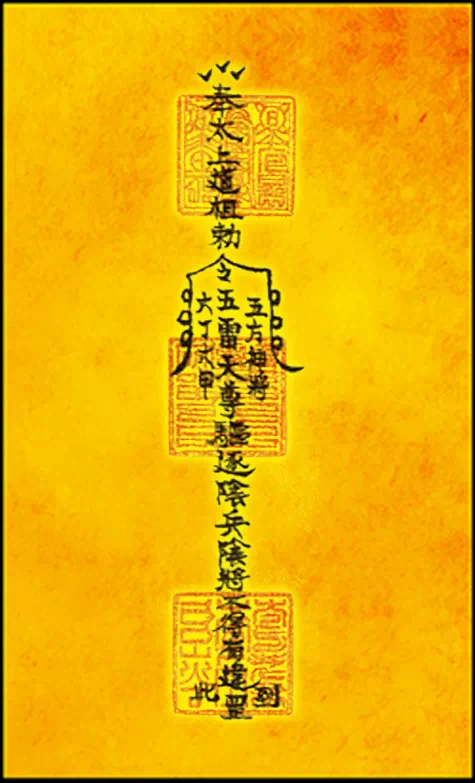 奉太上道祖勅令五雷天尊驅逐陰兵陰將不得有違罡
五方神將
六丁六甲
到
此